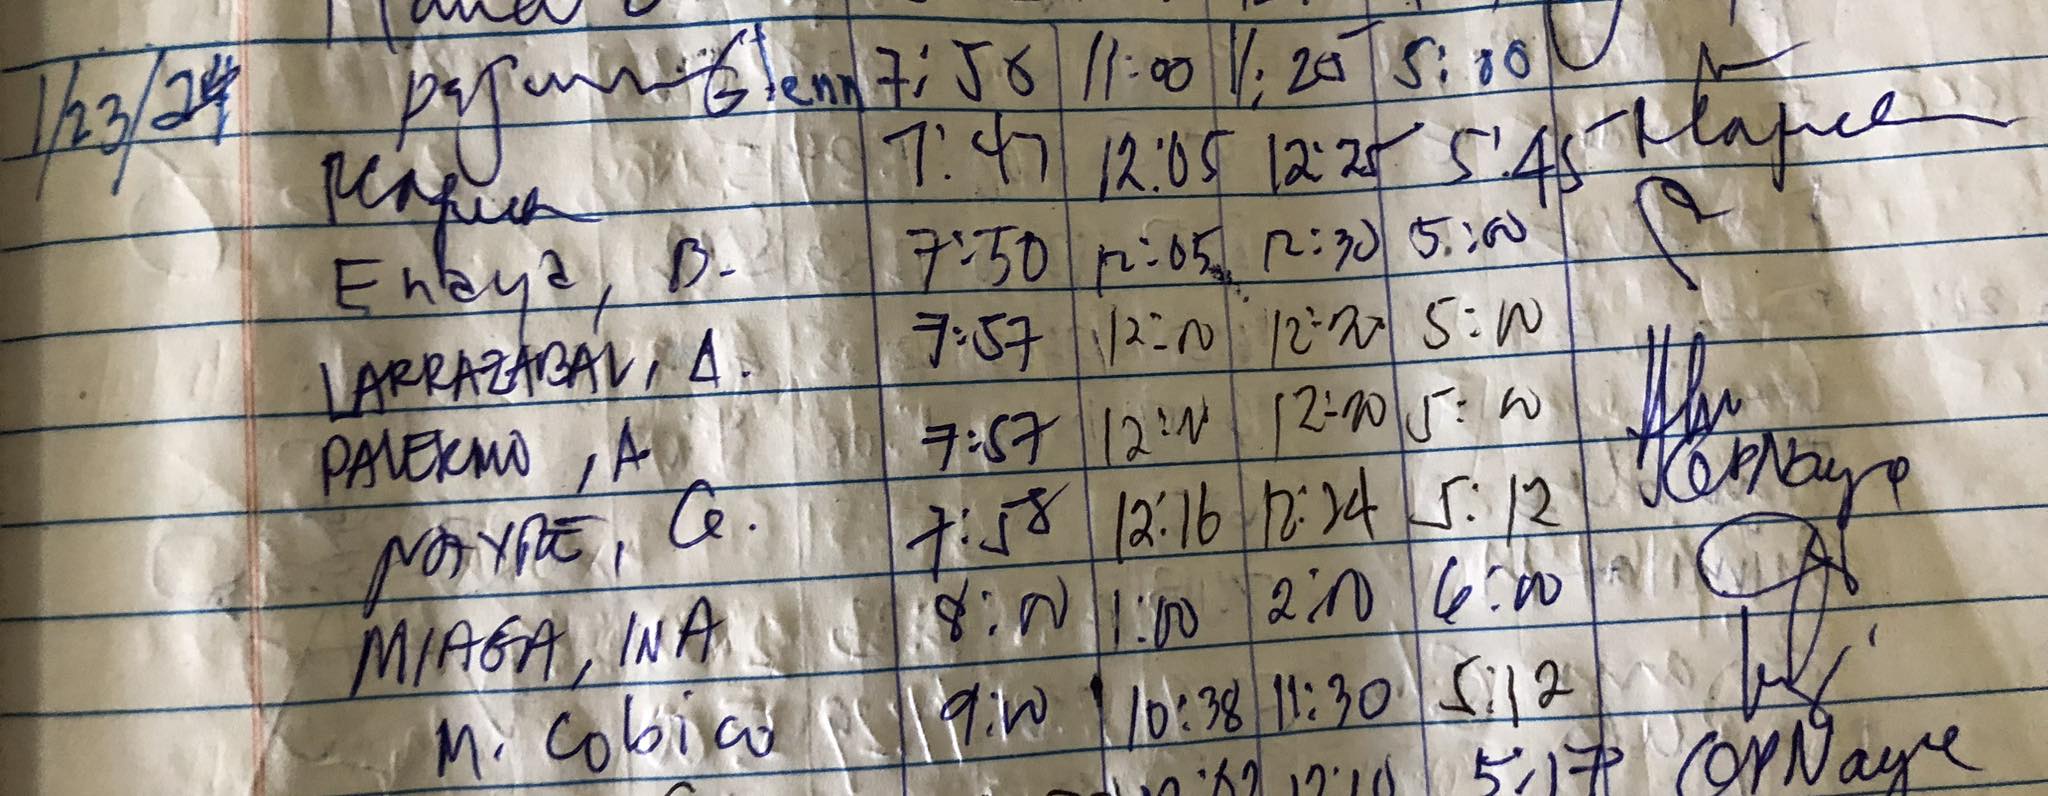 1/23/24 Glenn 7:56 11:00 11:25 5:00
7:47 12:05 12:25 5:45
Enaya, B. 7:50 12:05 12:30 5:00
LARRAZABAL, A. 7:57 12:00 12:20 5:00
PALERMO, A 7:57 12:00 12:20 5:00
NAYRE, G. 7:58 12:16 12:24 5:12 GPNayre
MIAGA, INA 8:00 1:00 2:00 6:00
M. Cobico 9:00 10:38 11:30 5:12
5:17 GPNayre